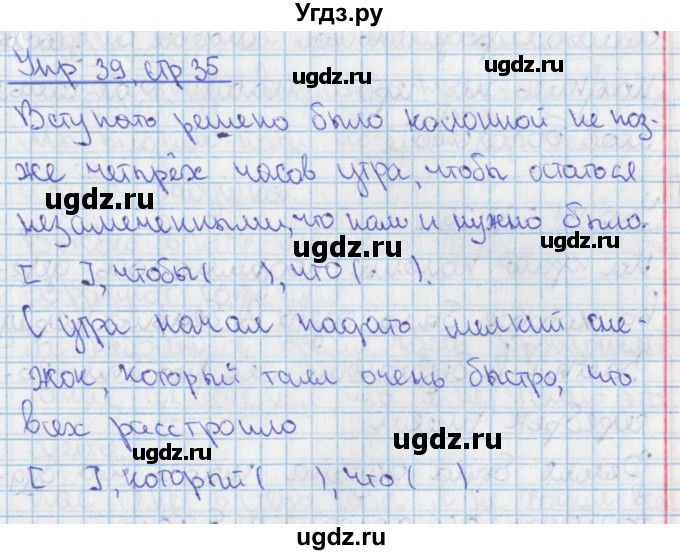 Угдз.ру
Упр 39, стр 35
ugdz.ru
ugdz.ru
Вступать решено было колонной не поз-
же четырёх часов утра, чтобы остаться
ugdz.ru
ugdz.ru
незамеченными, что нам и нужно было.
ugdz.ru
[ ], чтобы ( ), что ( ).
С утра начал падать мелкий сне-
ugdz.ru
ugdz.ru
жок, который таял очень быстро, что
всех расстроило
ugdz.ru
ugdz.ru
[ ], который ( ), что ( )
ugdz.ru